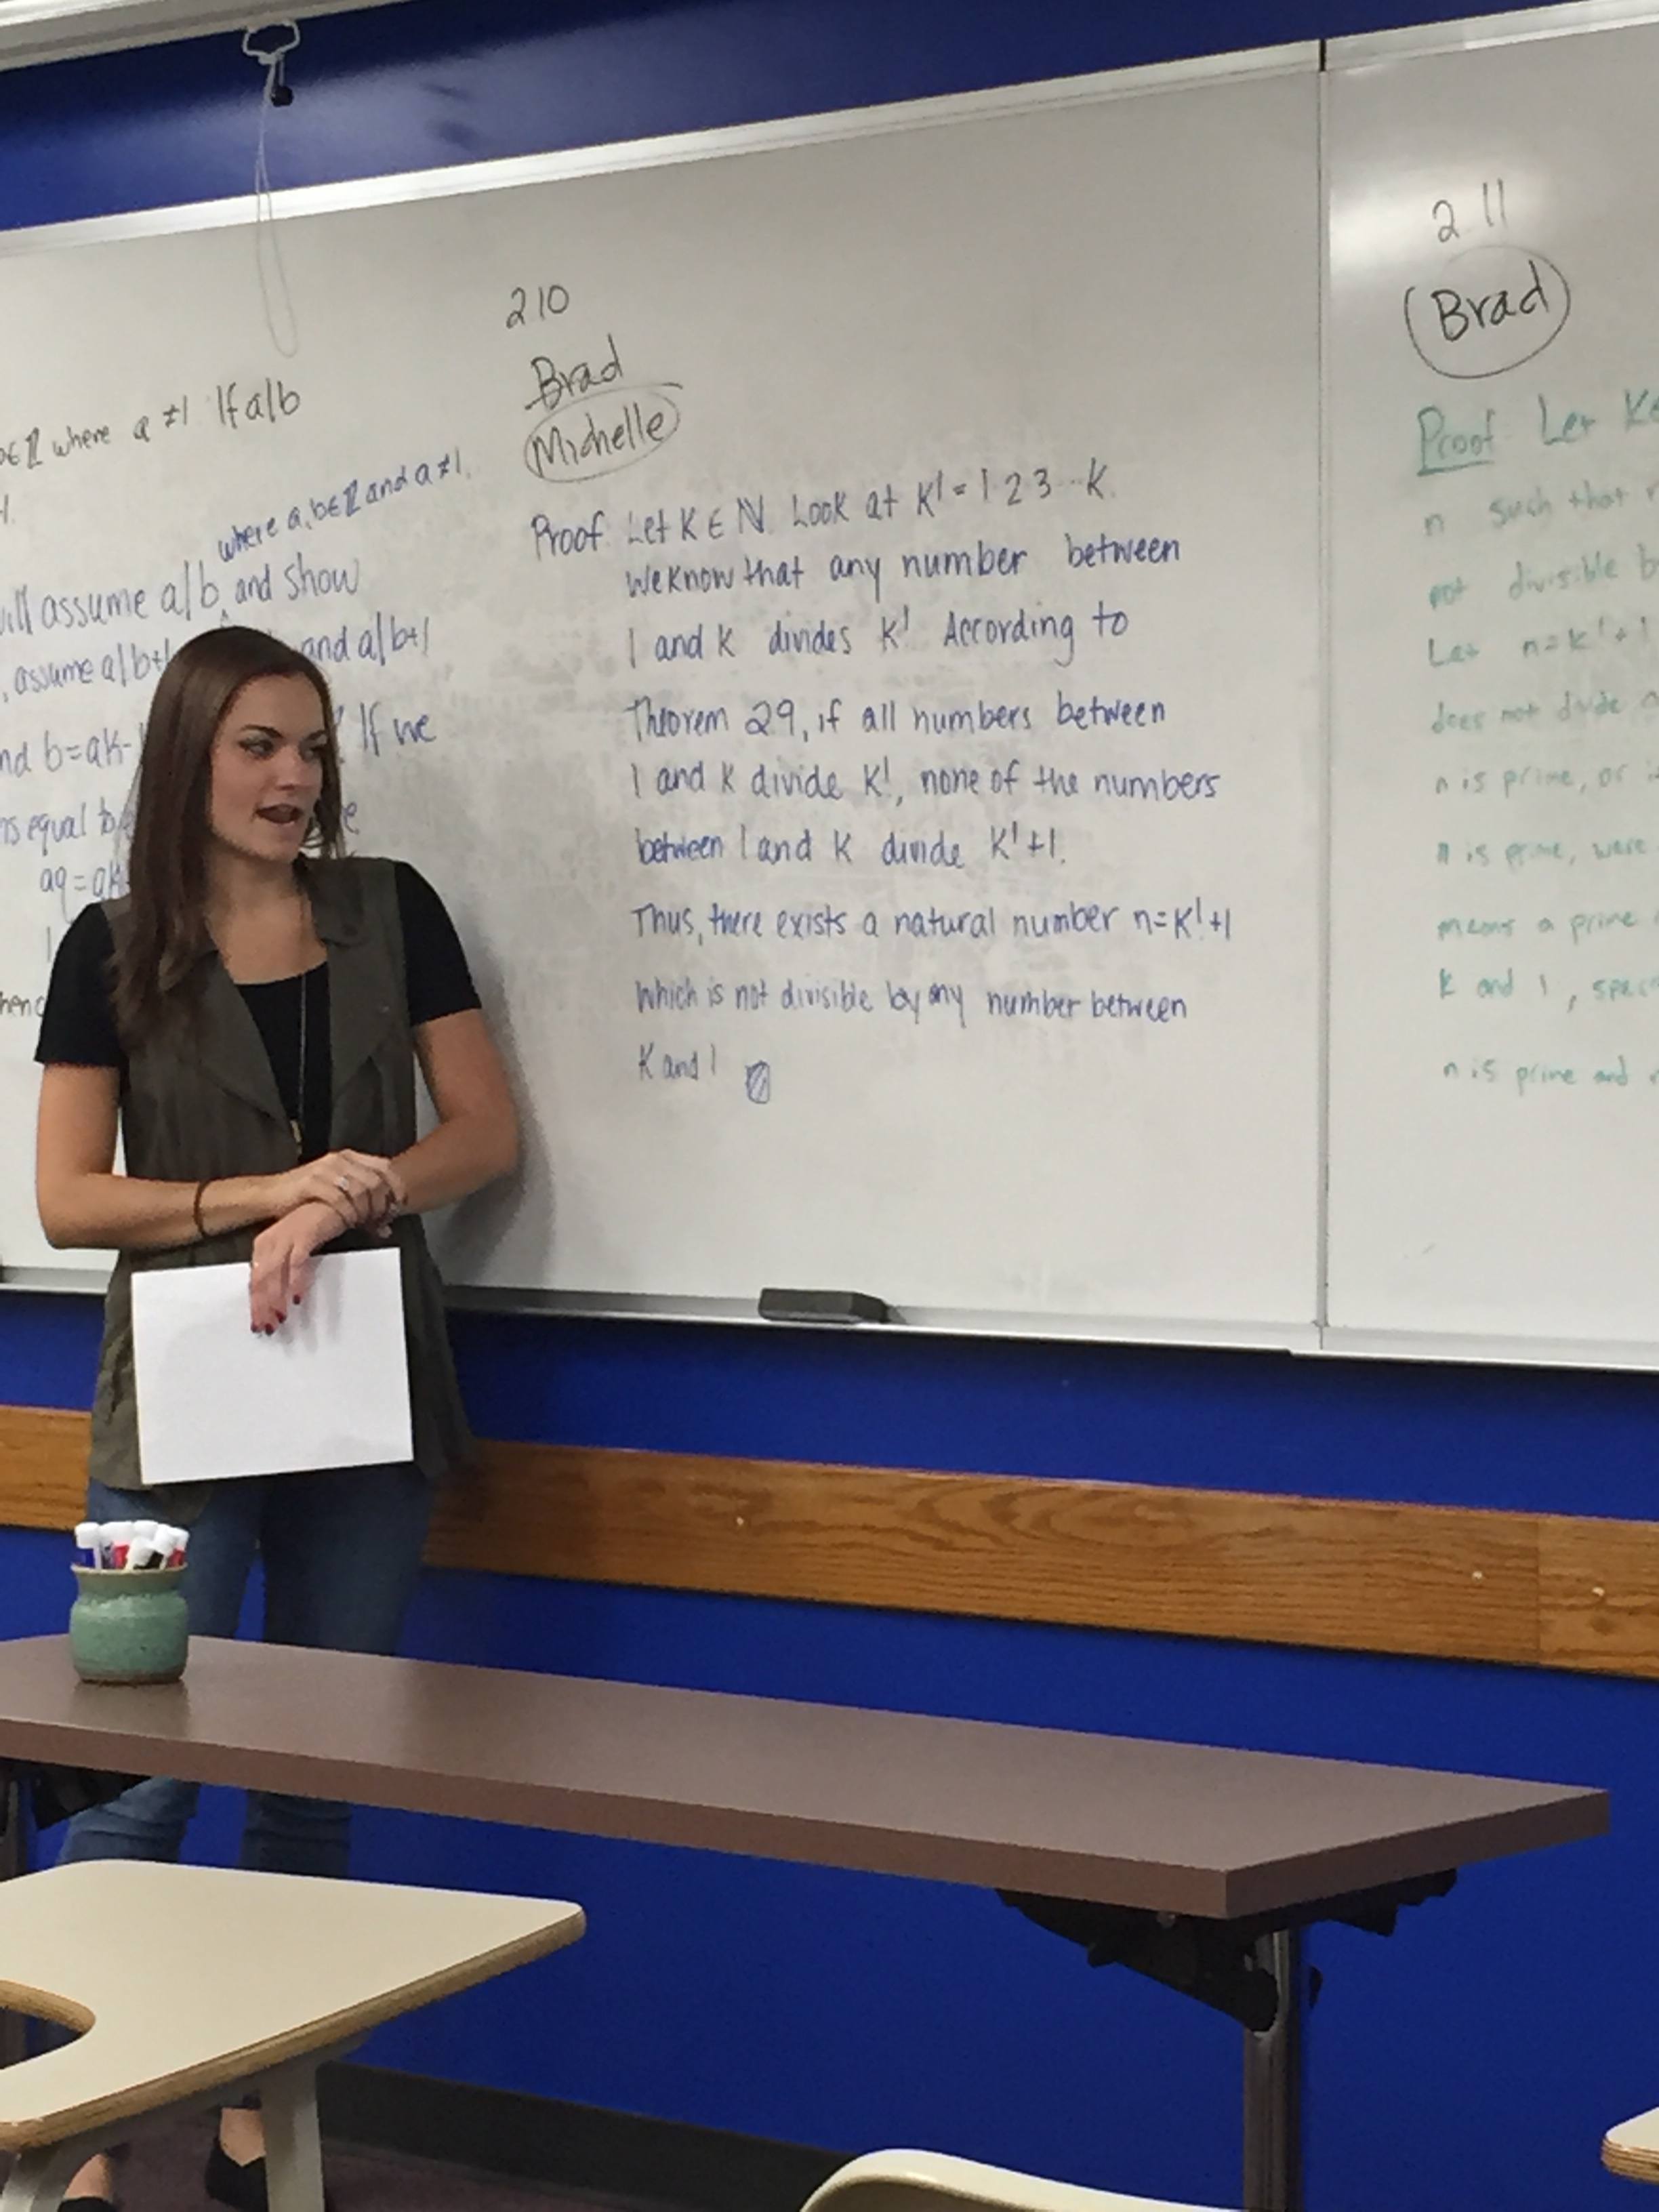 b∈ℤ where a ≠ 1 If a|b
where a, b∈ℤ and a ≠ 1.
will assume a|b and show
, assume a|b+1 and a|b+1
and b=ak- If we
is equal to
aq=ak
2 10
Brad
Michelle
Proof Let K ∈ ℕ. Look at K! = 1 2 3 ... K.
We know that any number between
1 and K divides K! According to
Theorem 29, if all numbers between
1 and K divide K!, none of the numbers
between 1 and K divide K!+1.
Thus, there exists a natural number n=K!+1
which is not divisible by any number between
K and 1
2 11
Brad
Proof Let K
n such that
not divisible
Let n=K!+1
does not divide
n is prime, or
n is prime, were
means a prime
K and 1,
n is prime and